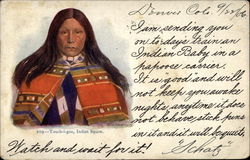 Denver Colo. 9/20/06
I am sending you
on to days train an
Indian Baby in a
papoose carrier
It is good and will
not keep you awake
nights, anytime it does
not behave, stick pins
in it and it will be quiet
Watch and wait for it! "Schatz"
Indian Squaw.